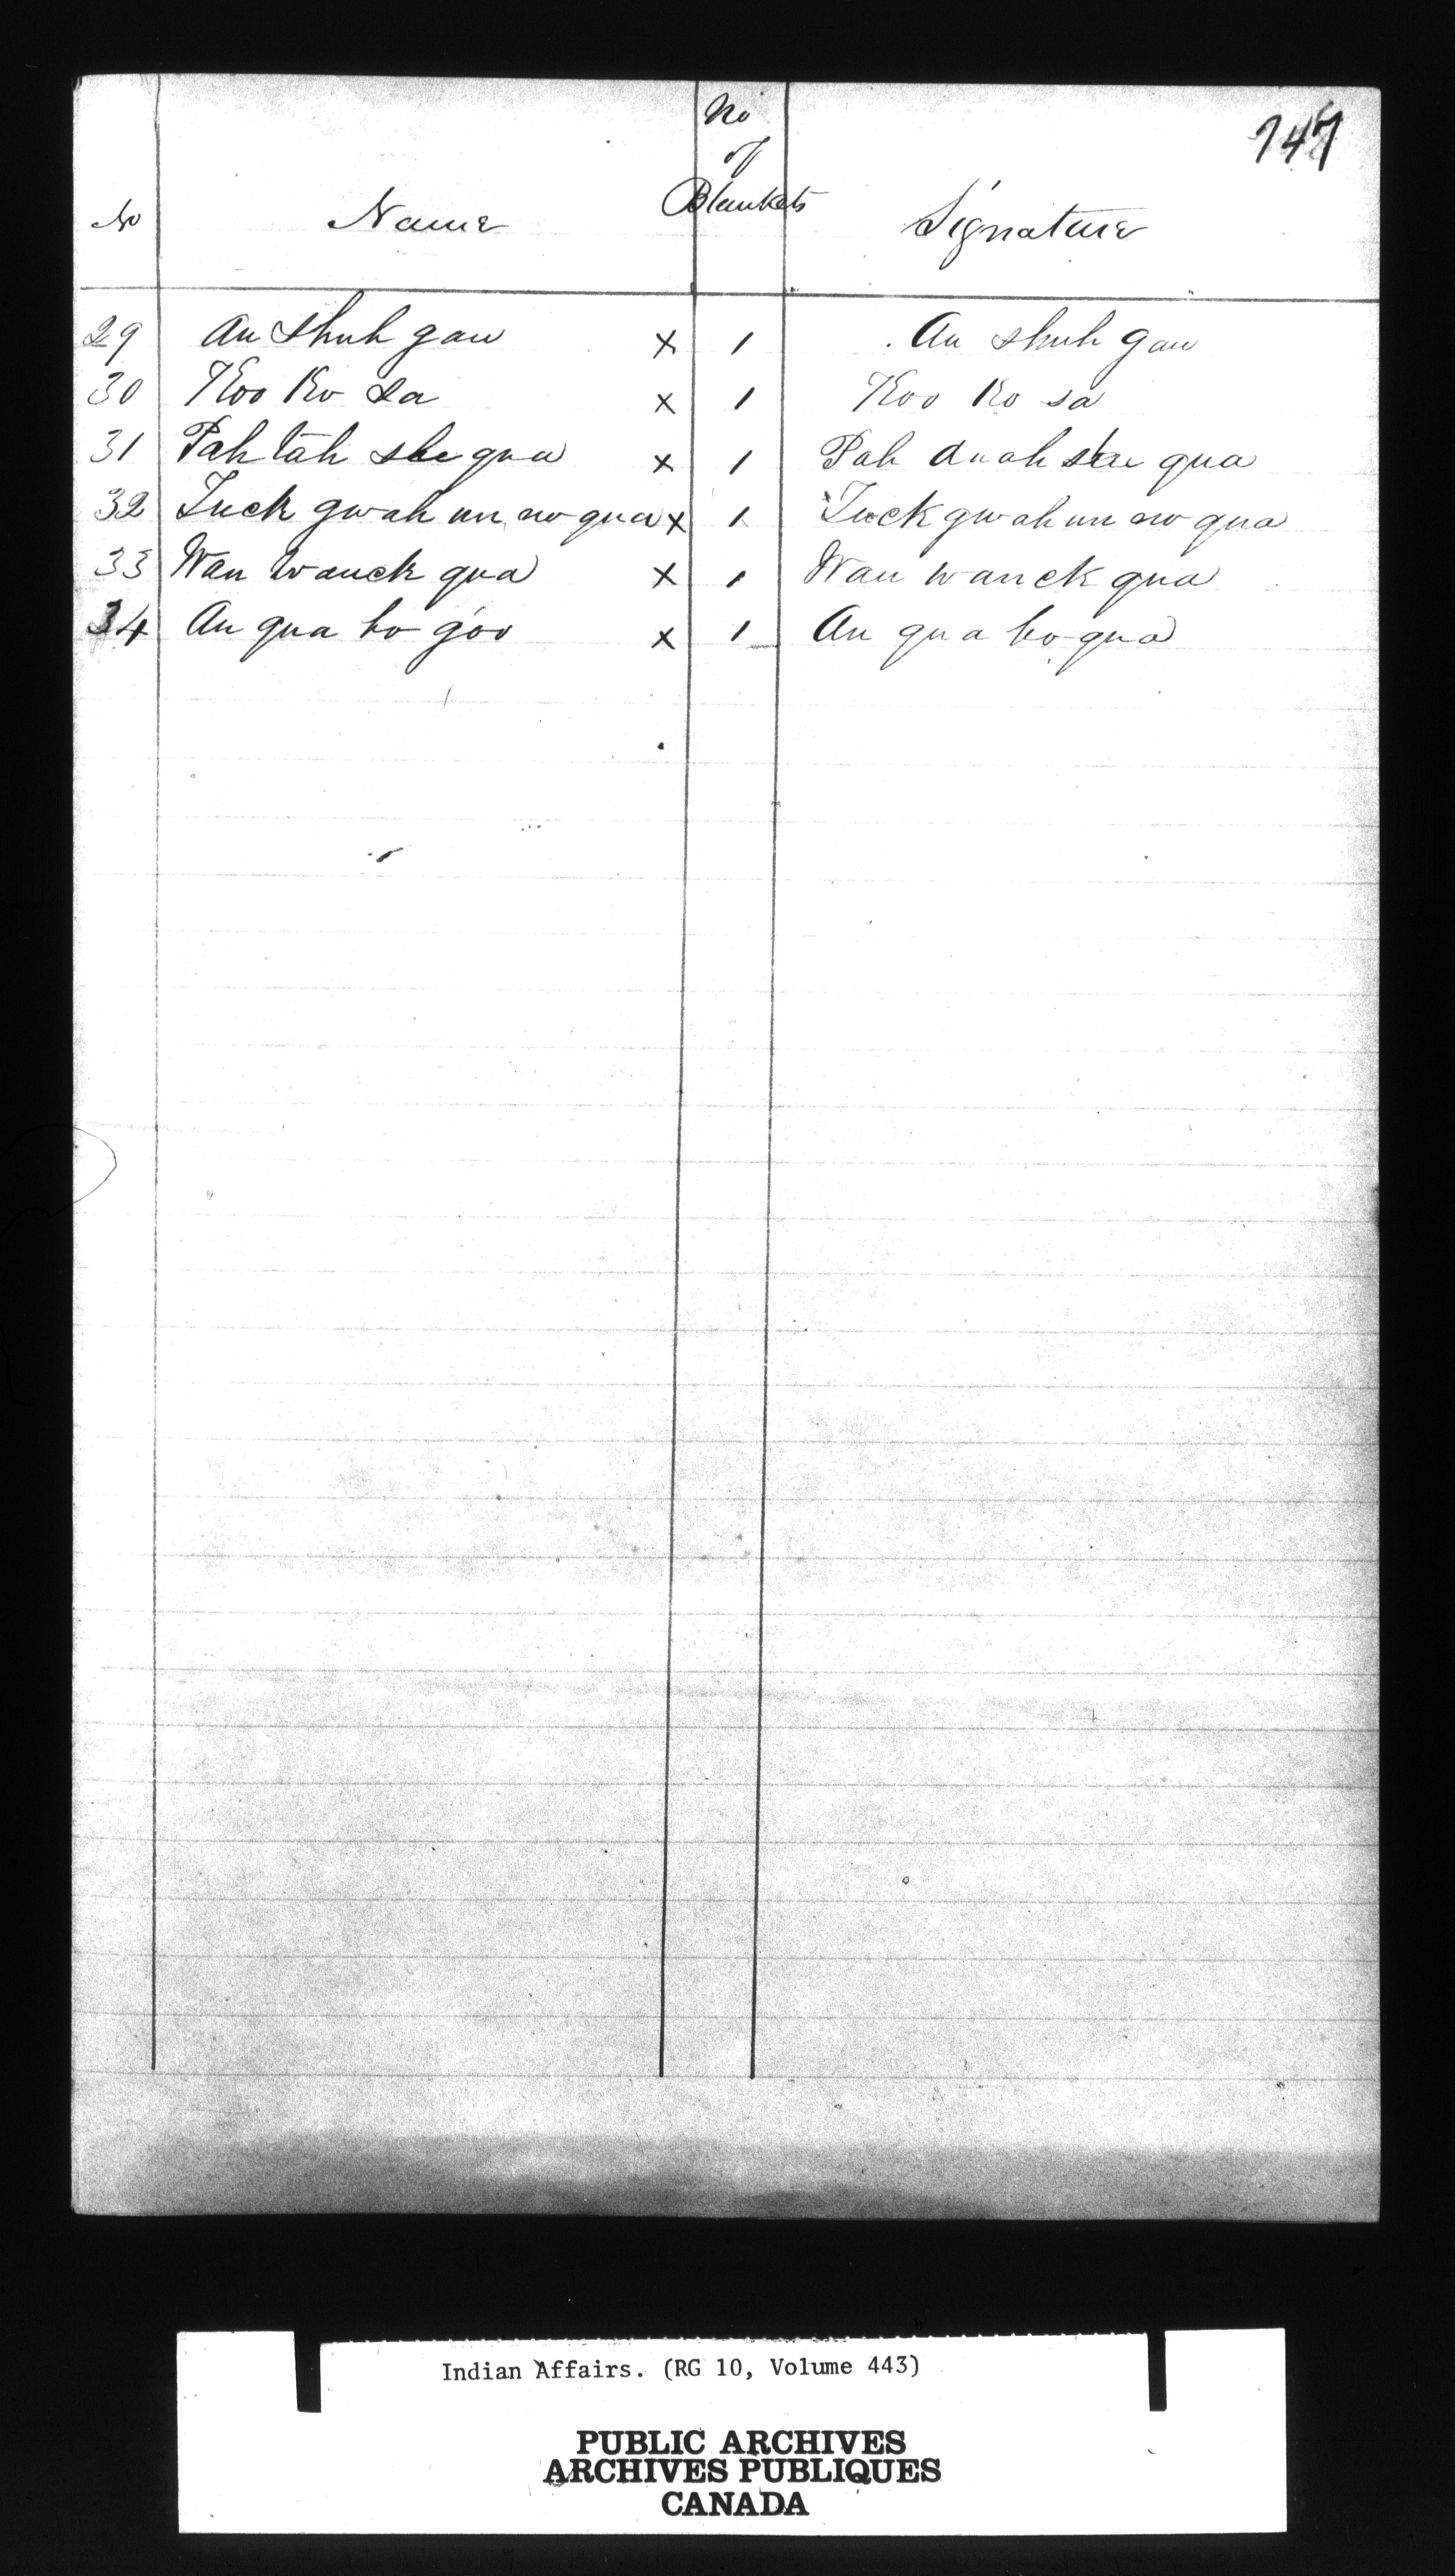 747
No
of
No Name Blankets Signature
29 Au Shuh gau x 1 Au shuh gau
30 Koo Ko Sa x 1 Koo Ko sa
31 Pah tah she qua x 1 Pah duah she qua
32 Tuck gwah un no qua x 1 Tuck gwah un no qua
33 Wau wauck qua x 1 Wau wauck qua
34 Au qua bo goo x 1 Au qua bo qua
Indian Affairs. (RG 10, Volume 443)
PUBLIC ARCHIVES
ARCHIVES PUBLIQUES
CANADA